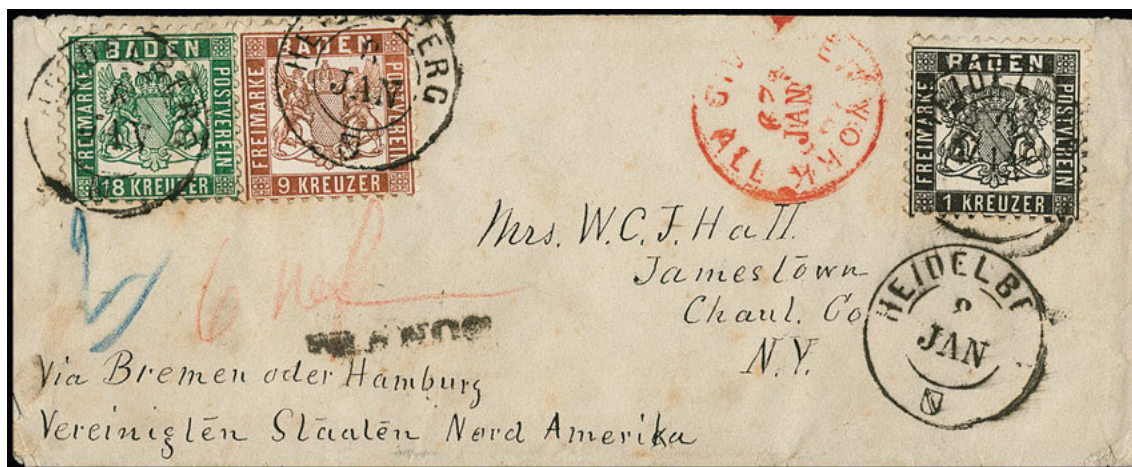 BADEN
FREIMARKE
POSTVEREIN
18 KREUZER
BADEN
FREIMARKE
POSTVEREIN
9 KREUZER
JAN
YORK
JAN
ALL
BADEN
FREIMARKE
POSTVEREIN
1 KREUZER
Mrs. W.C.J. Hall.
Jamestown
Chaut. Co
N.Y.
HEIDELBE
JAN
2
6
FRANCO
Via Bremen oder Hamburg
Vereinigten Staaten Nord Amerika